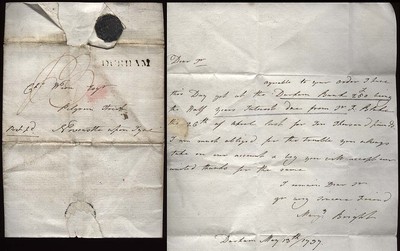 DURHAM
Wm
Pilgrim Street
Newcastle upon Tyne
Dear Sr
agreeable to your order I have
this Day got at the Durham Bank £ being
the Half Years Interest due from Mr
the 26th of March last for Ten thousand pounds
I am much obliged for the trouble you always
take on our account & beg you will accept our
united thanks for the same
I remain Dear Sir
yr very sincere Friend
Durham May 13th